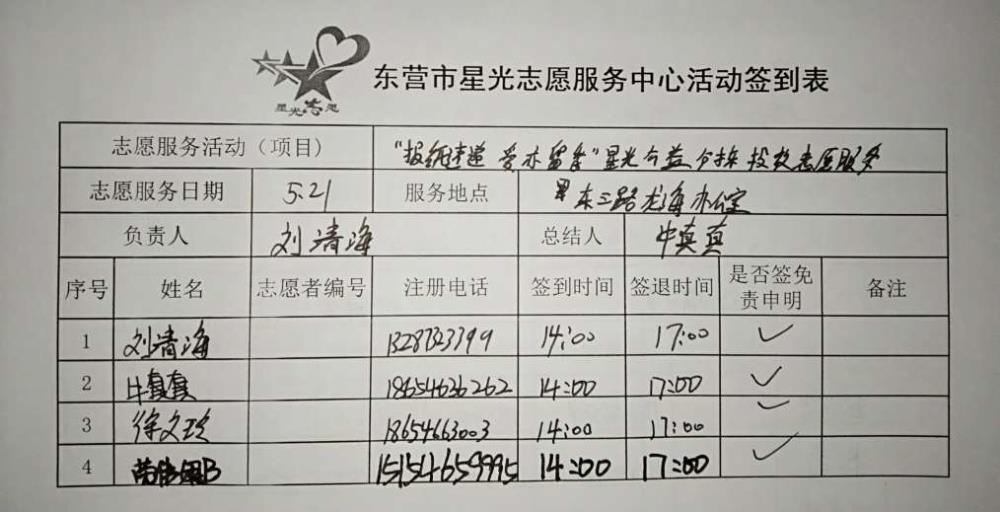 星光志愿
东营市星光志愿服务中心活动签到表
志愿服务活动（项目） "报纸速递 爱亦留香"星光公益分拣投放志愿服务
志愿服务日期 5.21 服务地点 东三路龙海办公室
负责人 刘清海 总结人 牛真真
序号 姓名 志愿者编号 注册电话 签到时间 签退时间 是否签免责申明 备注
1 刘清海 14:00 17:00 ✓
2 牛真真 18654626262 14:00 17:00 ✓
3 徐文玲 18654663003 14:00 17:00 ✓
4 15154659995 14:00 17:00 ✓